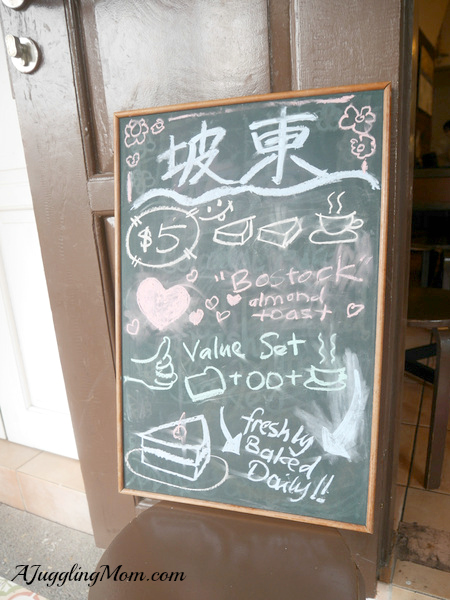 坡東
$5
"Bostock"
almond
toast
Value Set
+OO+
freshly
Baked
Daily!!
AJugglingMom.com